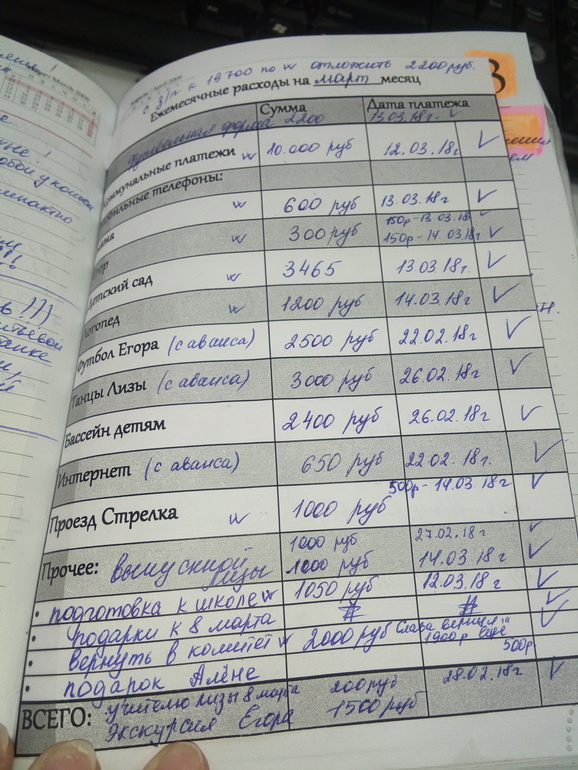 с з/п к 19700 по w отложить 2200 руб.
Ежемесячные расходы на март месяц
Сумма Дата платежа
футбольная форма 2200 15.03.18г. ✓
Коммунальные платежи w 10.000 руб 12.03.18г ✓
Мобильные телефоны:
w 600 руб 13.03.18г ✓
w 300 руб 150р-13.03.18 ✓
150р-14.03.18г ✓
Детский сад w 3465 13.03.18г. ✓
Логопед w 1200 руб 14.03.18г ✓
Футбол Егора (с аванса) 2500 руб 22.02.18г ✓
Танцы Лизы (с аванса) 3000 руб 26.02.18г ✓
Бассейн детям 2400 руб 26.02.18г ✓
Интернет (с аванса) 650 руб 22.02.18г. ✓
Проезд Стрелка w 1000 руб 500р-14.03.18г ✓
Прочее: выпускной Лизы 1000 руб 27.02.18г ✓
1000 руб 14.03.18г ✓
• подготовка к школе w 1050 руб 12.03.18г ✓
• подарки к 8 марта # # ✓
• вернуть в комитет w 2000 руб Слава вернул 1900р еще 500р. ✓
• подарок Алёне
ВСЕГО: учителю Лизы 8 марта 200 руб 28.02.18г ✓
Экскурсия Егора 1500 руб